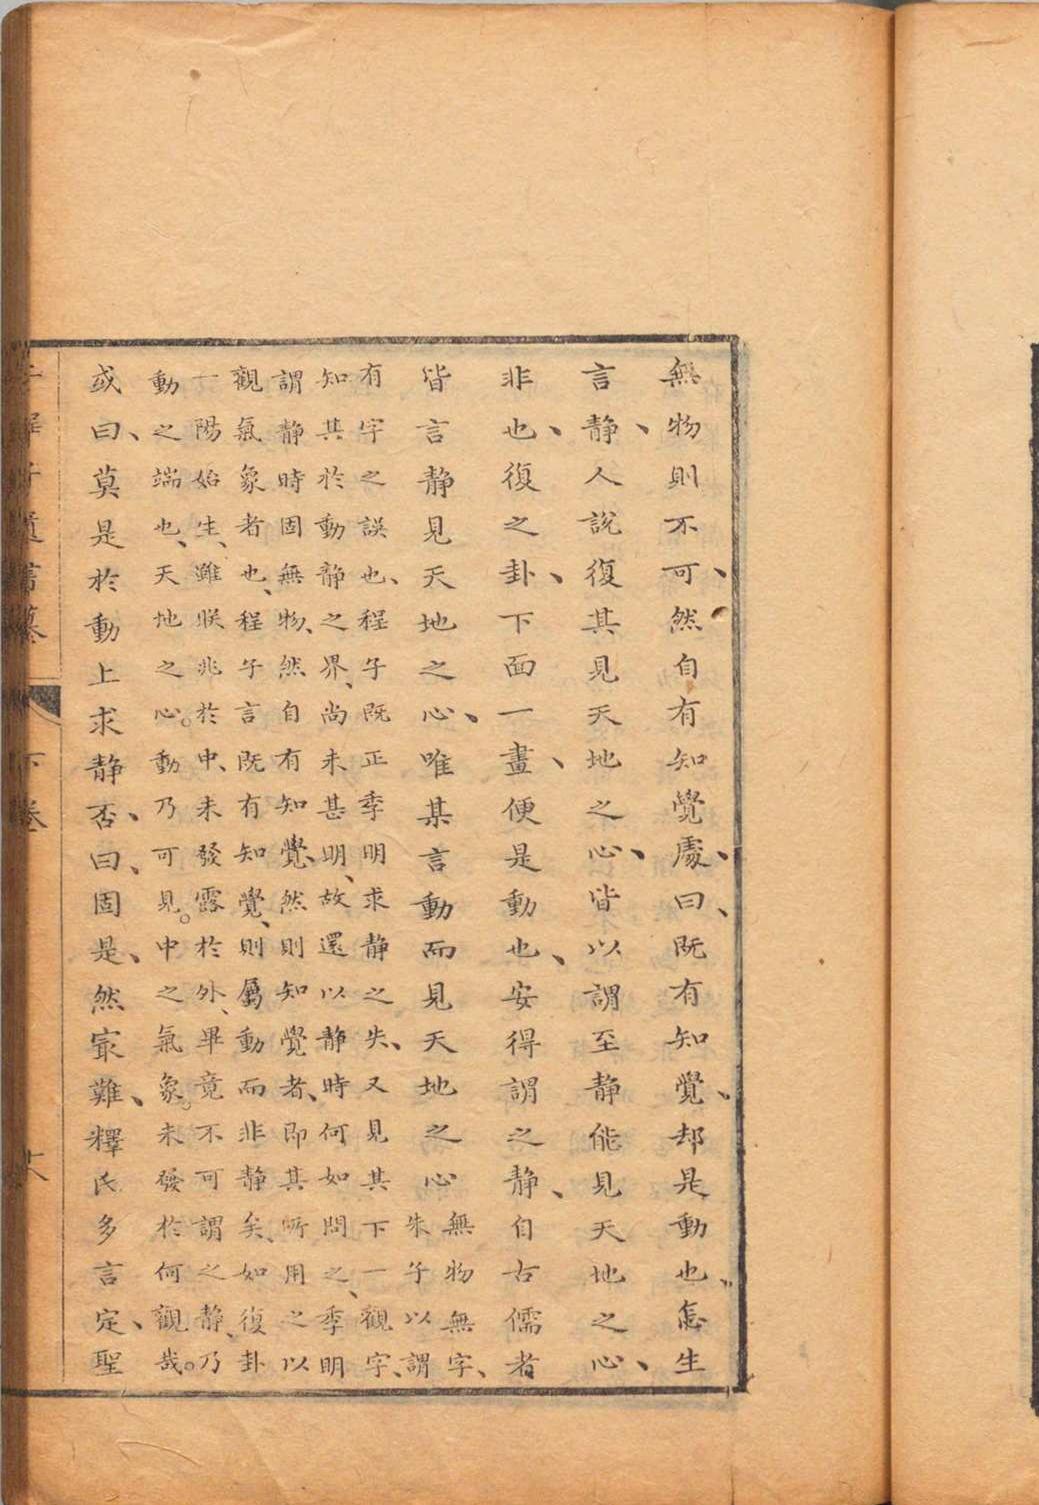 無物則不可、然自有知覺處、曰、既有知覺、却是動也、怎生
言静、人說復其見天地之心、皆以謂至静能見天地之心、
非也、復之卦、下面一畫、便是動也、安得謂之静、自古儒者
皆言静見天地之心、唯某言動而見天地之心
無物無字、
朱子以謂
有字之誤也、程子既正季明求静之失、又見其下一觀字、
知其於動静之界、尚未甚明、故還以静時何如問之、季明
謂静時固無物、然自有知覺、然則知覺者、即其所用之以
觀氣象者也、程子言既有知覺、則屬動而非静矣、如復卦
一陽始生、雖朕兆於中、未發露於外、畢竟不可謂之静、乃
動之端也、天地之心。動乃可見。中之氣象。未發於何觀哉。
或曰、莫是於動上求静否、曰、固是、然㝡難、釋氏多言定、聖
下卷